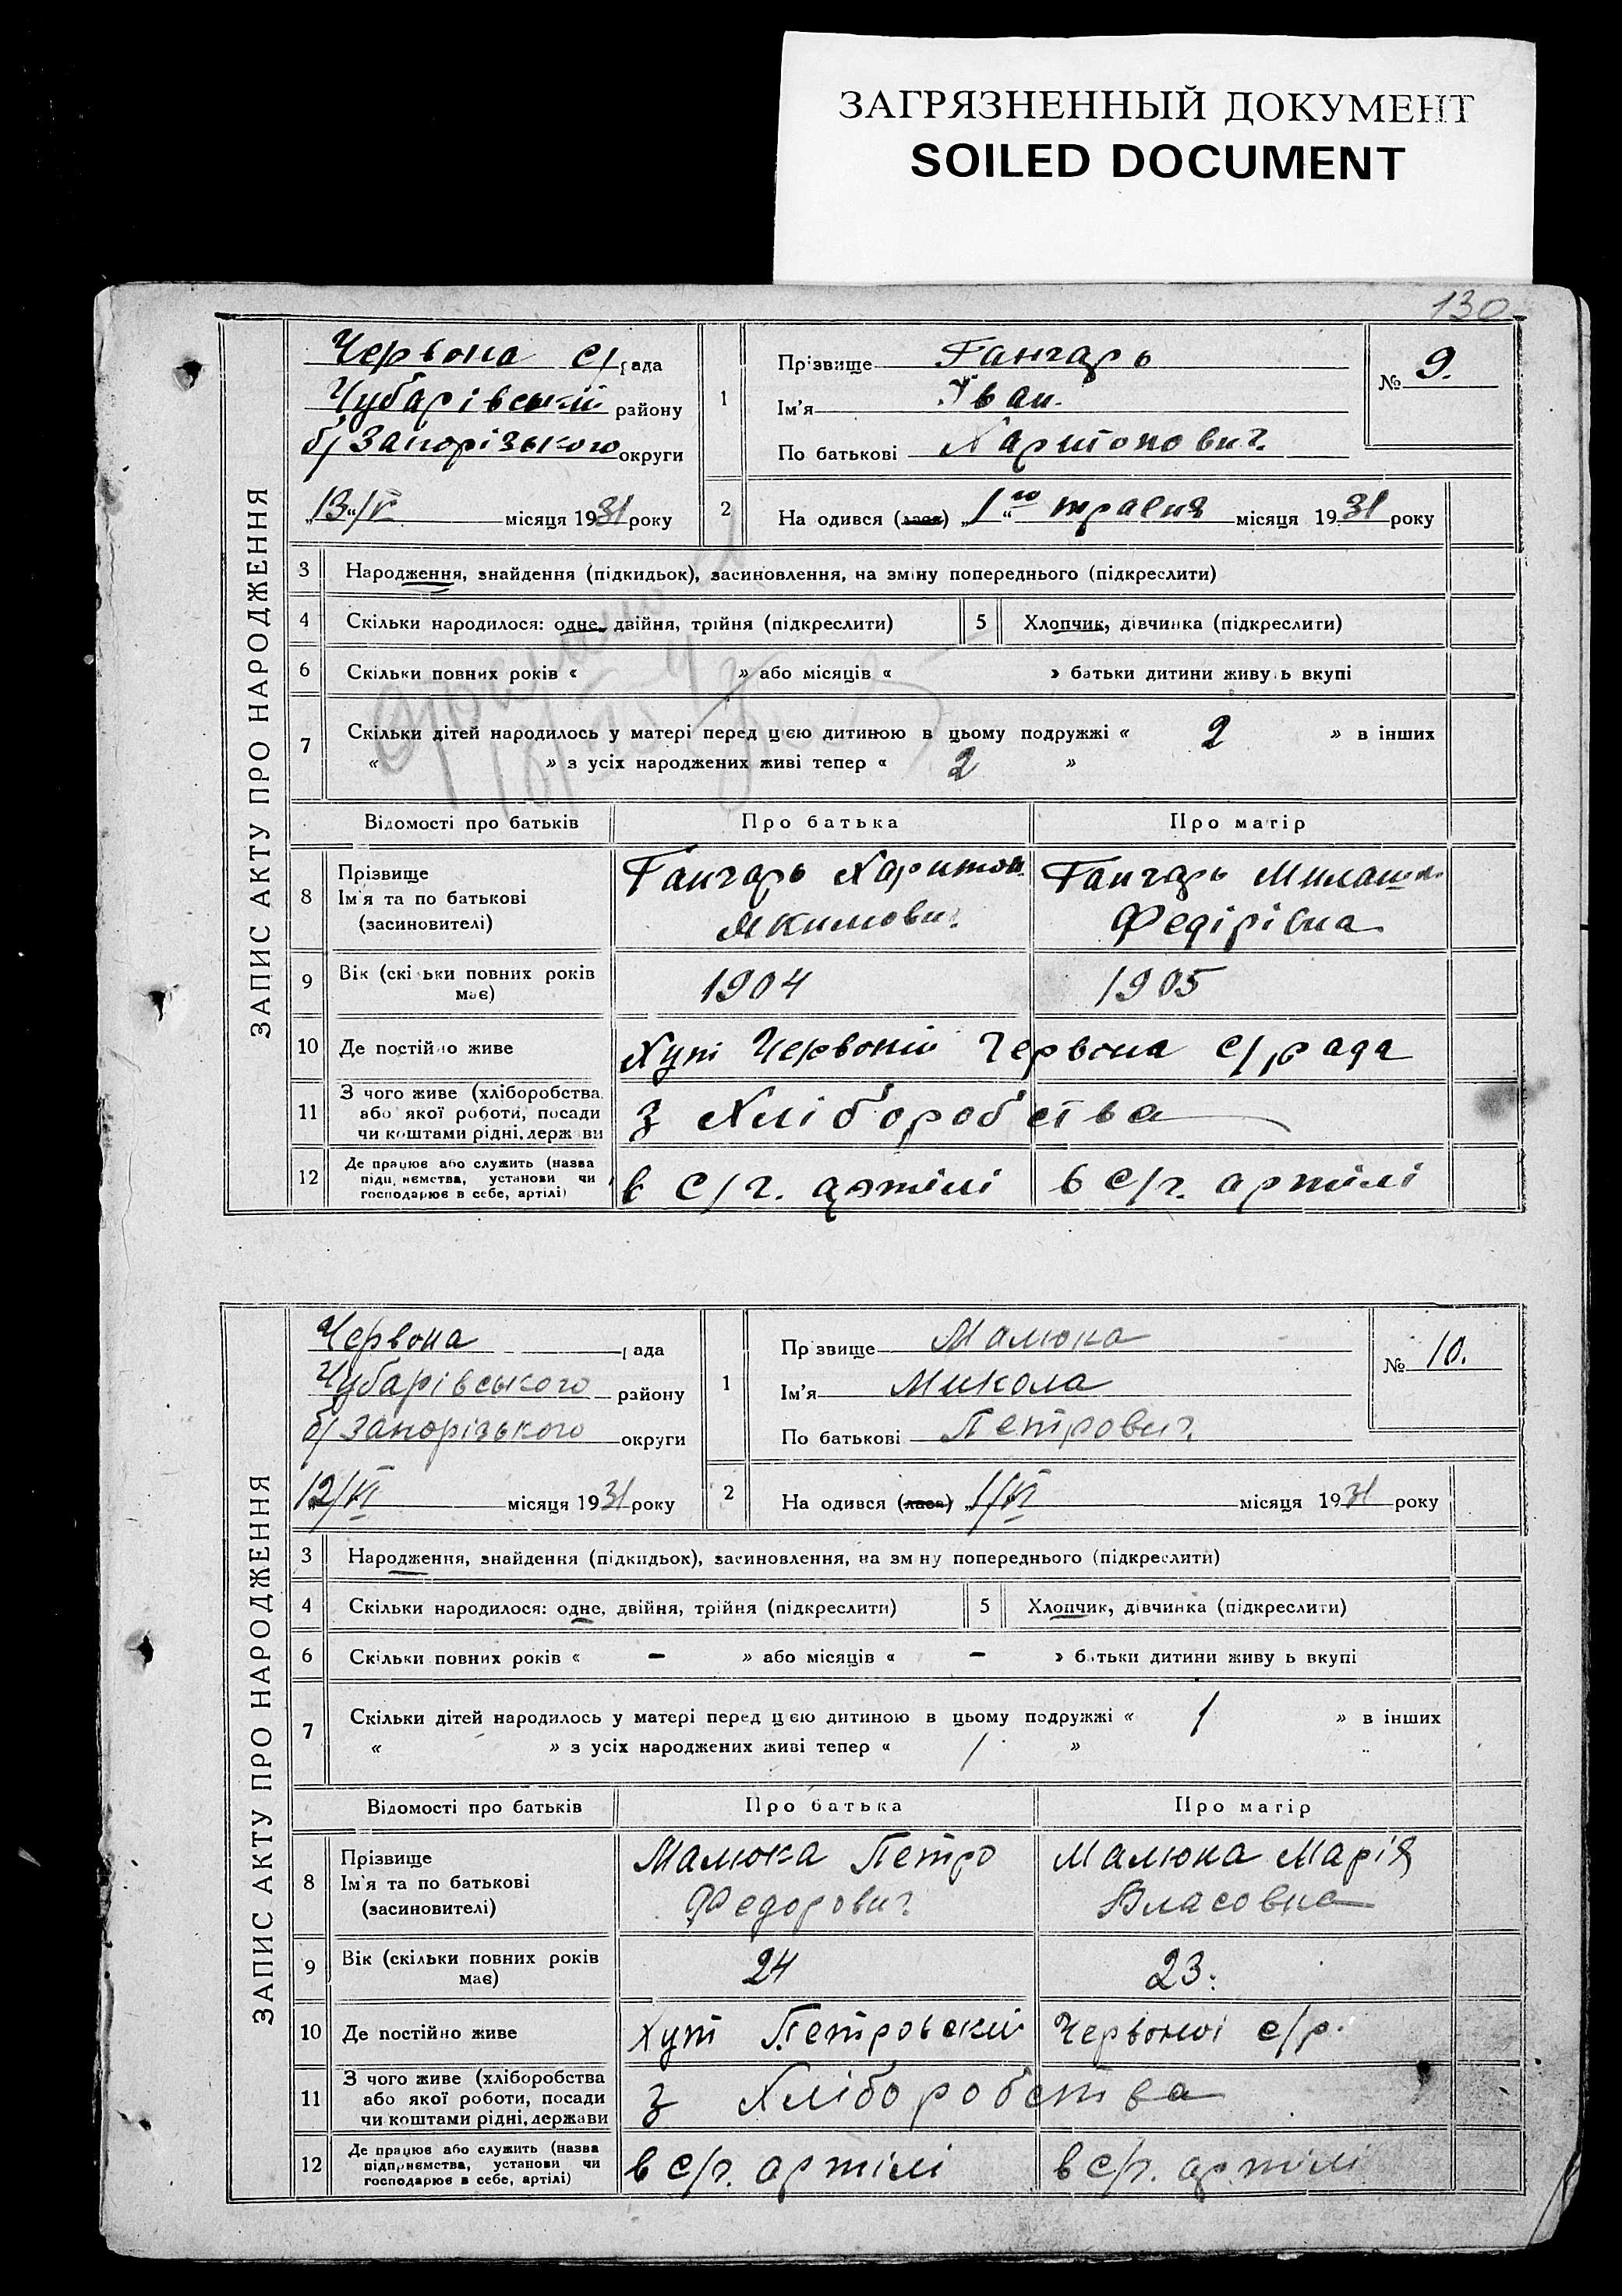 ЗАГРЯЗНЕННЫЙ ДОКУМЕНТ
SOILED DOCUMENT
130
ЗАПИС АКТУ ПРО НАРОДЖЕННЯ
Червона с/рада
Чубарівський району
б/Запорізького округи
„13“/V місяця 1931 року
1 Прізвище Ганчарь
Ім'я Іван.
По батькові Харитонович.
№ 9.
2 На одився (лася) „1го“ травня місяця 1931 року
3 Народження, знайдення (підкидьок), засиновлення, на зміну попереднього (підкреслити)
4 Скільки народилося: одне, двійня, трійня (підкреслити) 5 Хлопчик, дівчинка (підкреслити)
6 Скільки повних років « » або місяців « » батьки дитини живу ь вкупі
7 Скільки дітей народилось у матері перед цією дитиною в цьому подружжі « 2 » в інших
« » з усіх народжених живі тепер « 2 »
Відомості про батьків Про батька Про матір
8 Прізвище
Ім'я та по батькові
(засиновителі)
Ганчарь Харитон
Якимович
Ганчарь
Федірівна
9 Вік (скі ьки повних років
має)
1904 1905
10 Де постійно живе Хут Червоний Червона с/рада
11 З чого живе (хліборобства
або якої роботи, посади
чи коштами рідні, держ ви
з Хліборобства
12 Де працює або служить (назва
підприємства, установи чи
господарює в себе, артілі)
в с/г. артілі в с/г. артілі
ЗАПИС АКТУ ПРО НАРОДЖЕННЯ
Червона рада
Чубарівського району
б/Запорізького округи
12/VI місяця 1931 року
1 Пр звище Малюка
Ім'я Микола
По батькові Петрович.
№ 10.
2 На одився (лася) „1/VI місяця 1931 року
3 Народження, знайдення (підкидьок), засиновлення, на зм ну попереднього (підкреслити)
4 Скільки народилося: одне, двійня, трійня (підкреслити) 5 Хлопчик, дівчинка (підкреслити)
6 Скільки повних років « – » або місяців « – » батьки дитини живу ь вкупі
7 Скільки дітей народилось у матері перед цією дитиною в цьому подружжі « 1 » в інших
« » з усіх народжених живі тепер « 1 »
Відомості про батьків Про батька Про матір
8 Прізвище
Ім'я та по батькові
(засиновителі)
Малюка Петро
Федорович
Малюка Марія
Власовна
9 Вік (скільки повних років
має)
24 23.
10 Де постійно живе хут Петровский Червоної с/р.
11 З чого живе (хліборобства
або якої роботи, посади
чи коштами рідні, держави
з Хліборобства
12 Де працює або служить (назва
підприємства, установи чи
господарює в себе, артілі)
в с/г. артілі в с/г. артілі